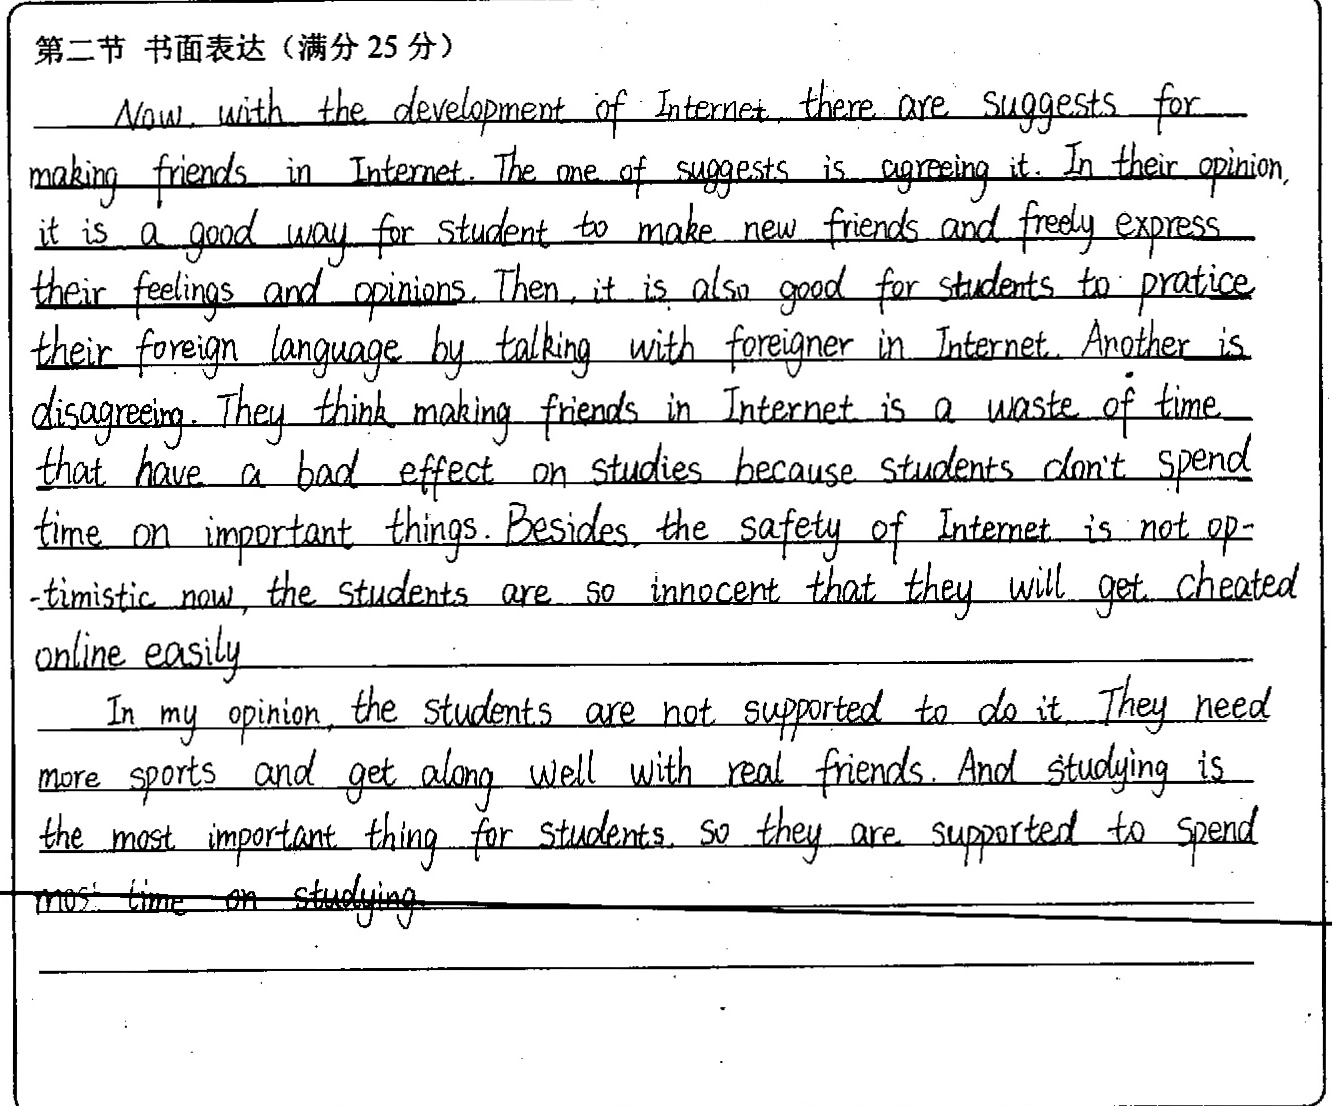 第二节 书面表达（满分 25 分）
Now, with the development of Internet, there are suggests for
making friends in Internet. The one of suggests is agreeing it. In their opinion,
it is a good way for student to make new friends and freely express
their feelings and opinions. Then, it is also good for students to pratice
their foreign language by talking with foreigner in Internet. Another is
disagreeing. They think making friends in Internet is a waste of time
that have a bad effect on studies because students don't spend
time on important things. Besides, the safety of Internet is not op-
-timistic now, the students are so innocent that they will get cheated
online easily
In my opinion, the students are not supported to do it. They need
more sports and get along well with real friends. And studying is
the most important thing for students. so they are supported to spend
most time on studying.